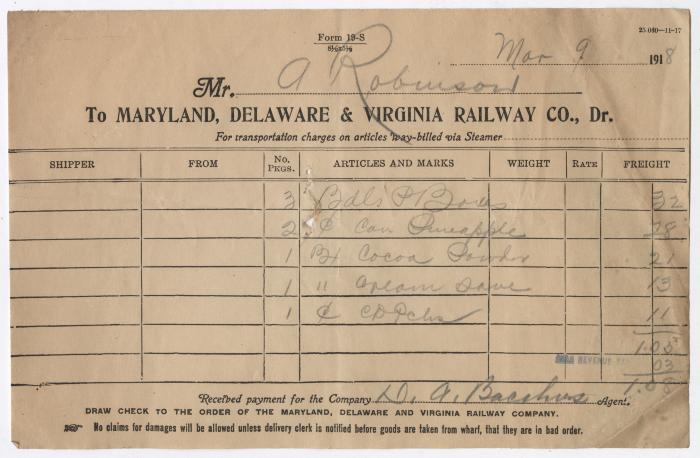 Form 19-S
8½x5½
25 000—11-17
Mar 9 1918
Mr. A Robinson
To MARYLAND, DELAWARE & VIRGINIA RAILWAY CO., Dr.
For transportation charges on articles way-billed via Steamer
SHIPPER FROM No. PKGS. ARTICLES AND MARKS WEIGHT RATE FREIGHT
3 Bdls P Boxes 32
2 ¢ Can Pineapple 28
1 Bx Cocoa Powder 21
1 " Cream 13
1 ¢ 11
1.05
WAR REVENUE 03
1.08
Received payment for the Company D. A. Agent.
DRAW CHECK TO THE ORDER OF THE MARYLAND, DELAWARE AND VIRGINIA RAILWAY COMPANY.
No claims for damages will be allowed unless delivery clerk is notified before goods are taken from wharf, that they are in bad order.